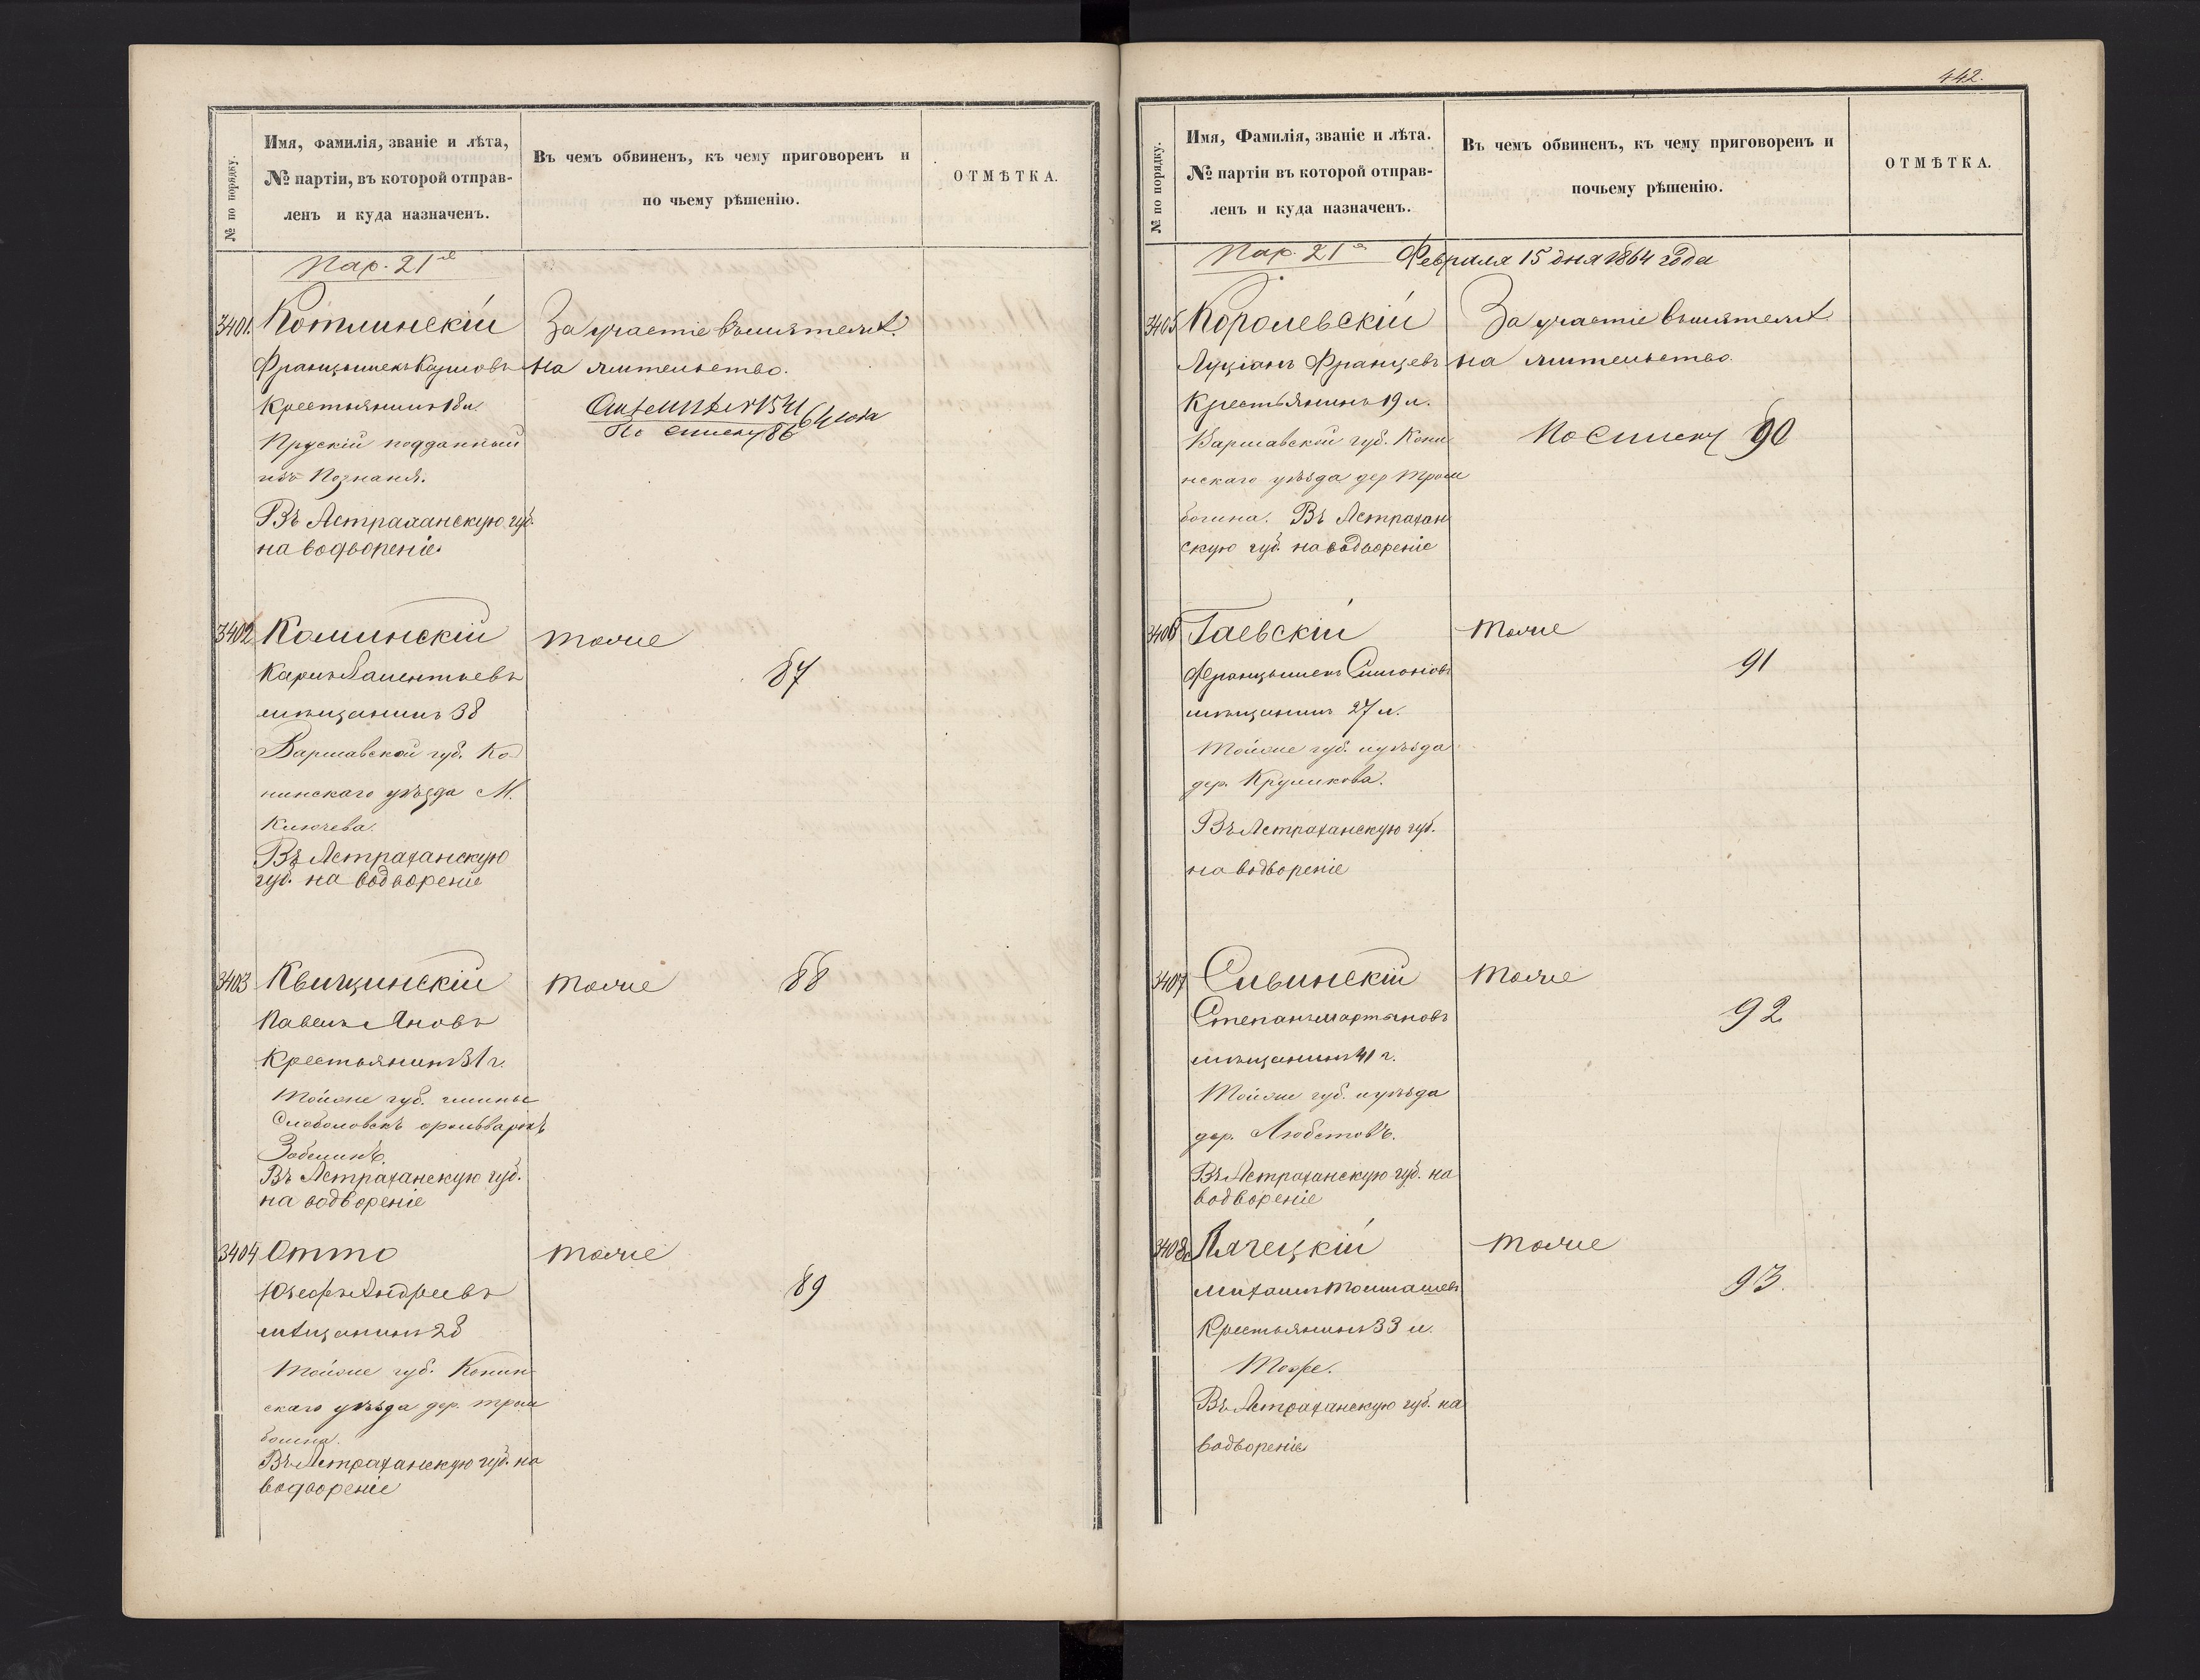 № по порядку.
Имя, фамилія, званіе и лѣта,
№ партіи, въ которой отправ-
ленъ и куда назначенъ.
Въ чемъ обвиненъ, къ чему приговоренъ и
по чьему рѣшенію.
ОТМѢТКА.
Пар. 21
3401. Котлинскій
За участіе въ мятеж
Францышекъ
на жительство.
Крестьянинъ 18 л.
По списку 86
Прускій подданный
изъ Познаня.
Въ Астраханскую губ.
на водвореніе.
3402 Каминскій
тоже
Карлъ Валентьевъ
87
мѣщанинъ 38
Варшавской губ. Ко-
нинскаго уѣзда М.
Ключева.
Въ Астраханскую
губ. на водвореніе
3403 Квицинскій
тоже 88
Павелъ Яновъ
Крестьянинъ 31 г.
Тойже губ. гмины
фольваркъ
Въ Астраханскую губ.
на водвореніе
3404 Отто
тоже
Юзефъ Андреевъ
89
мѣщанинъ 28
Тойже губ. Конин-
скаго уѣзда дер.
Въ Астраханскую губ. на
водвореніе
442.
№ по порядку.
Имя, Фамилія, званіе и лѣта.
№ партіи въ которой отправ-
ленъ и куда назначенъ.
Въ чемъ обвиненъ, къ чему приговоренъ и
почьему рѣшенію.
ОТМѢТКА.
Пар. 21 Февраля 15 дня 1864 года
3405 Королевскій
За участіе въ мятеж
Луціанъ Францевъ
на жительство.
Крестьянинъ 19 л.
По списку 90
Варшавской губ. Кони
нскаго уѣзда дер
Въ Астрахан
скую губ. на водвореніе
3406 Гаевскій
тоже
Францышекъ Симоновъ
91
мѣщанинъ 27 л.
Тойже губ. и уѣзда
дер. Круликова.
Въ Астраханскую губ.
на водвореніе
3407 Сивинскій
тоже
Степанъ Мартыновъ
92
мѣщанинъ 41 г.
Тойже губ. и уѣзда
дер. Любстовъ.
Въ Астраханскую губ. на
водвореніе
3408 Лячецкій
тоже
Михаилъ Томашевъ
93.
Крестьянинъ 33 л.
Тоже.
Въ Астраханскую губ. на
водвореніе